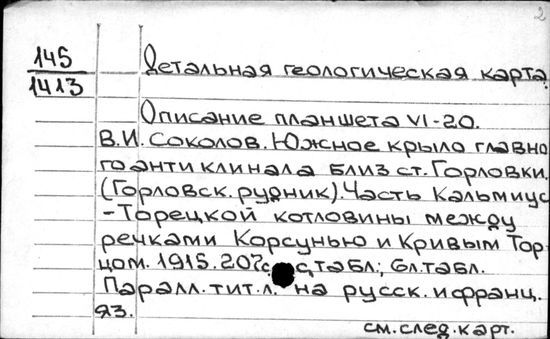 2
145
1413
Детальная геологическая карта.
Описание планшета VI-20.
В.И. Соколов. Южное крыло главно
го антиклинала близ ст. Горловки.
(Горловск. рудник). Часть Кальмиус
-Торецкой котловины между
речками Корсунью и Кривым Тор-
цом. 1915. 20 табл.; 6л. табл.
Паралл. тит. л. на русск. и франц.
яз.
см. след. карт.